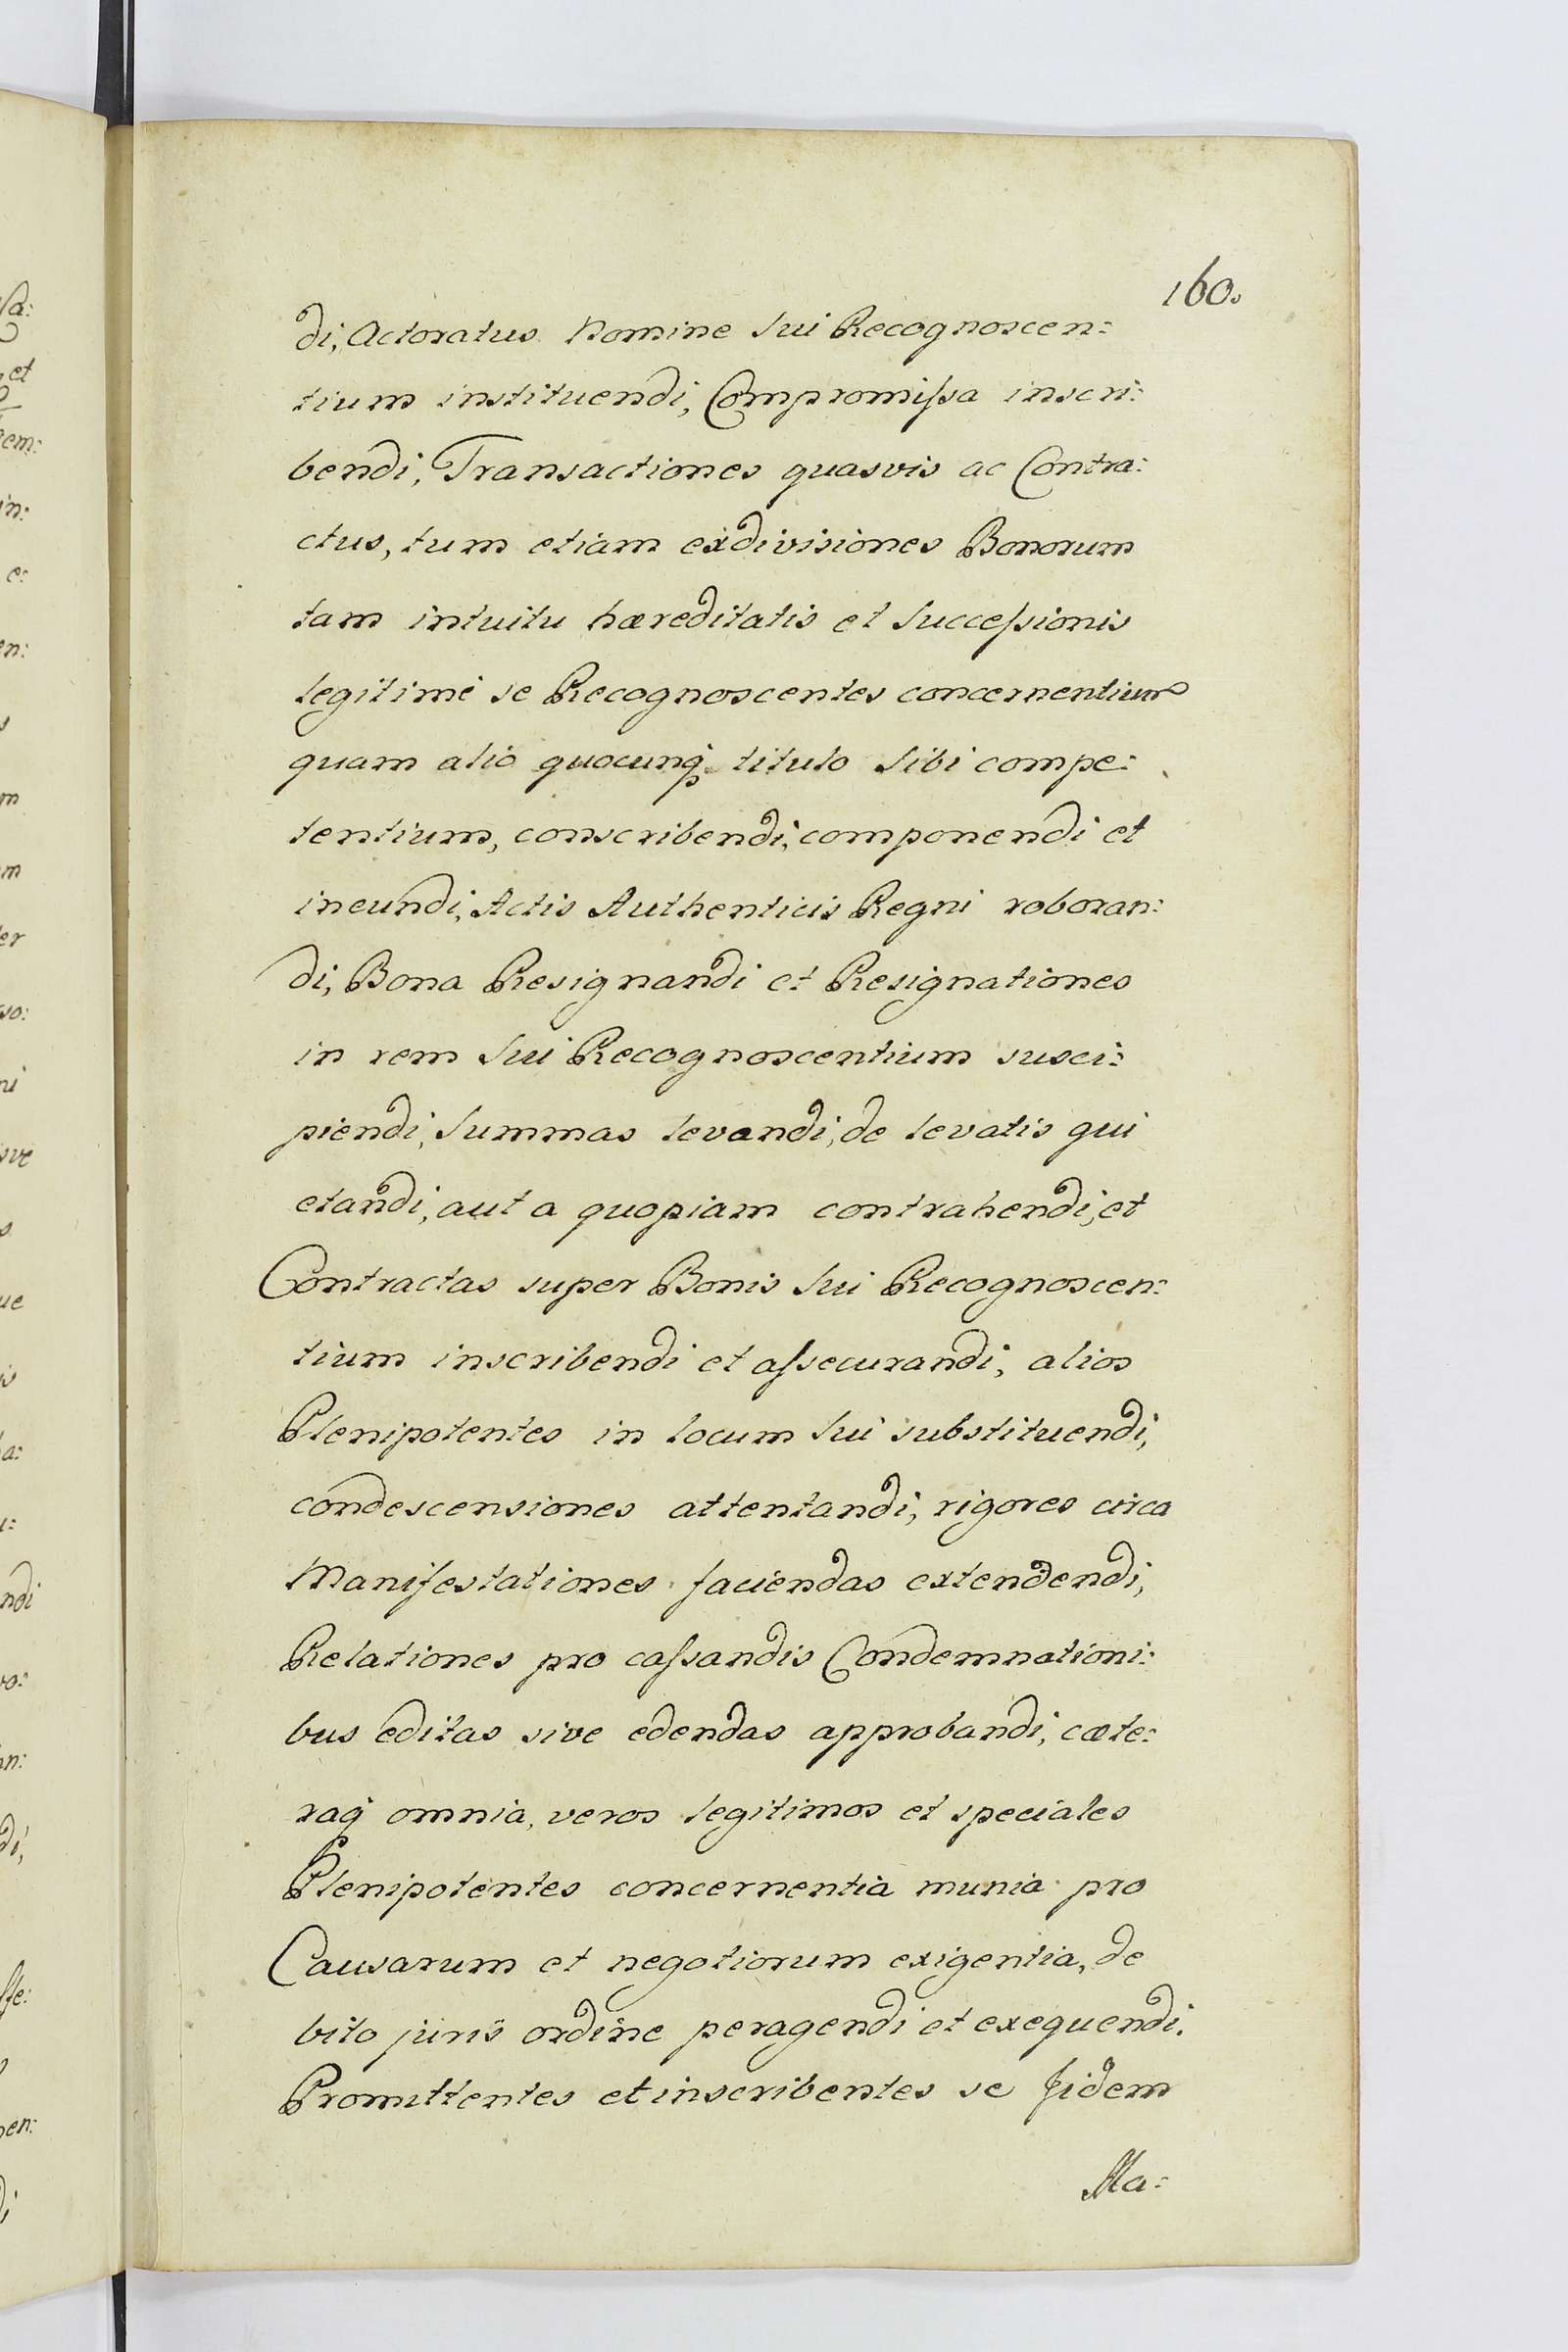 160.
di, Actoratus Nomine Sui Recognoscen:
tium instituendi, Compromiſsa inscri:
bendi, Transactiones quasvis ac Contra:
ctus, tum etiam exdivisiones Bonorum
tam intuitu hæreditatis et Succeſsionis
legitimè se Recognoscentes concernentium
quam alio quocunq́ titulo Sibi compe:
tentium, conscribendi, componendi et
ineundi, Actis Authenticis Regni roboran:
di, Bona Resignandi et Resignationes
in rem Sui Recognoscentium susci:
piendi, Summas levandi, de levatis qui
etandi, aut a quopiam contrahendi, et
Contractas super Bonis Sui Recognoscen:
tium inscribendi et aſsecurandi, alios
Plenipotentes in locum Sui substituendi,
condescensiones attentandi, rigores circa
Manifestationes faciendas extendendi,
Relationes pro caſsandis Condemnationi:
bus editas sive edendas approbandi, cæte:
raq́ omnia, veros legitimos et speciales
Plenipotentes concernentia munia pro
Causarum et negotiorum exigentia, de
bito juris ordine peragendi et exequendi.
Promittentes et inscribentes se fidem
Ma: